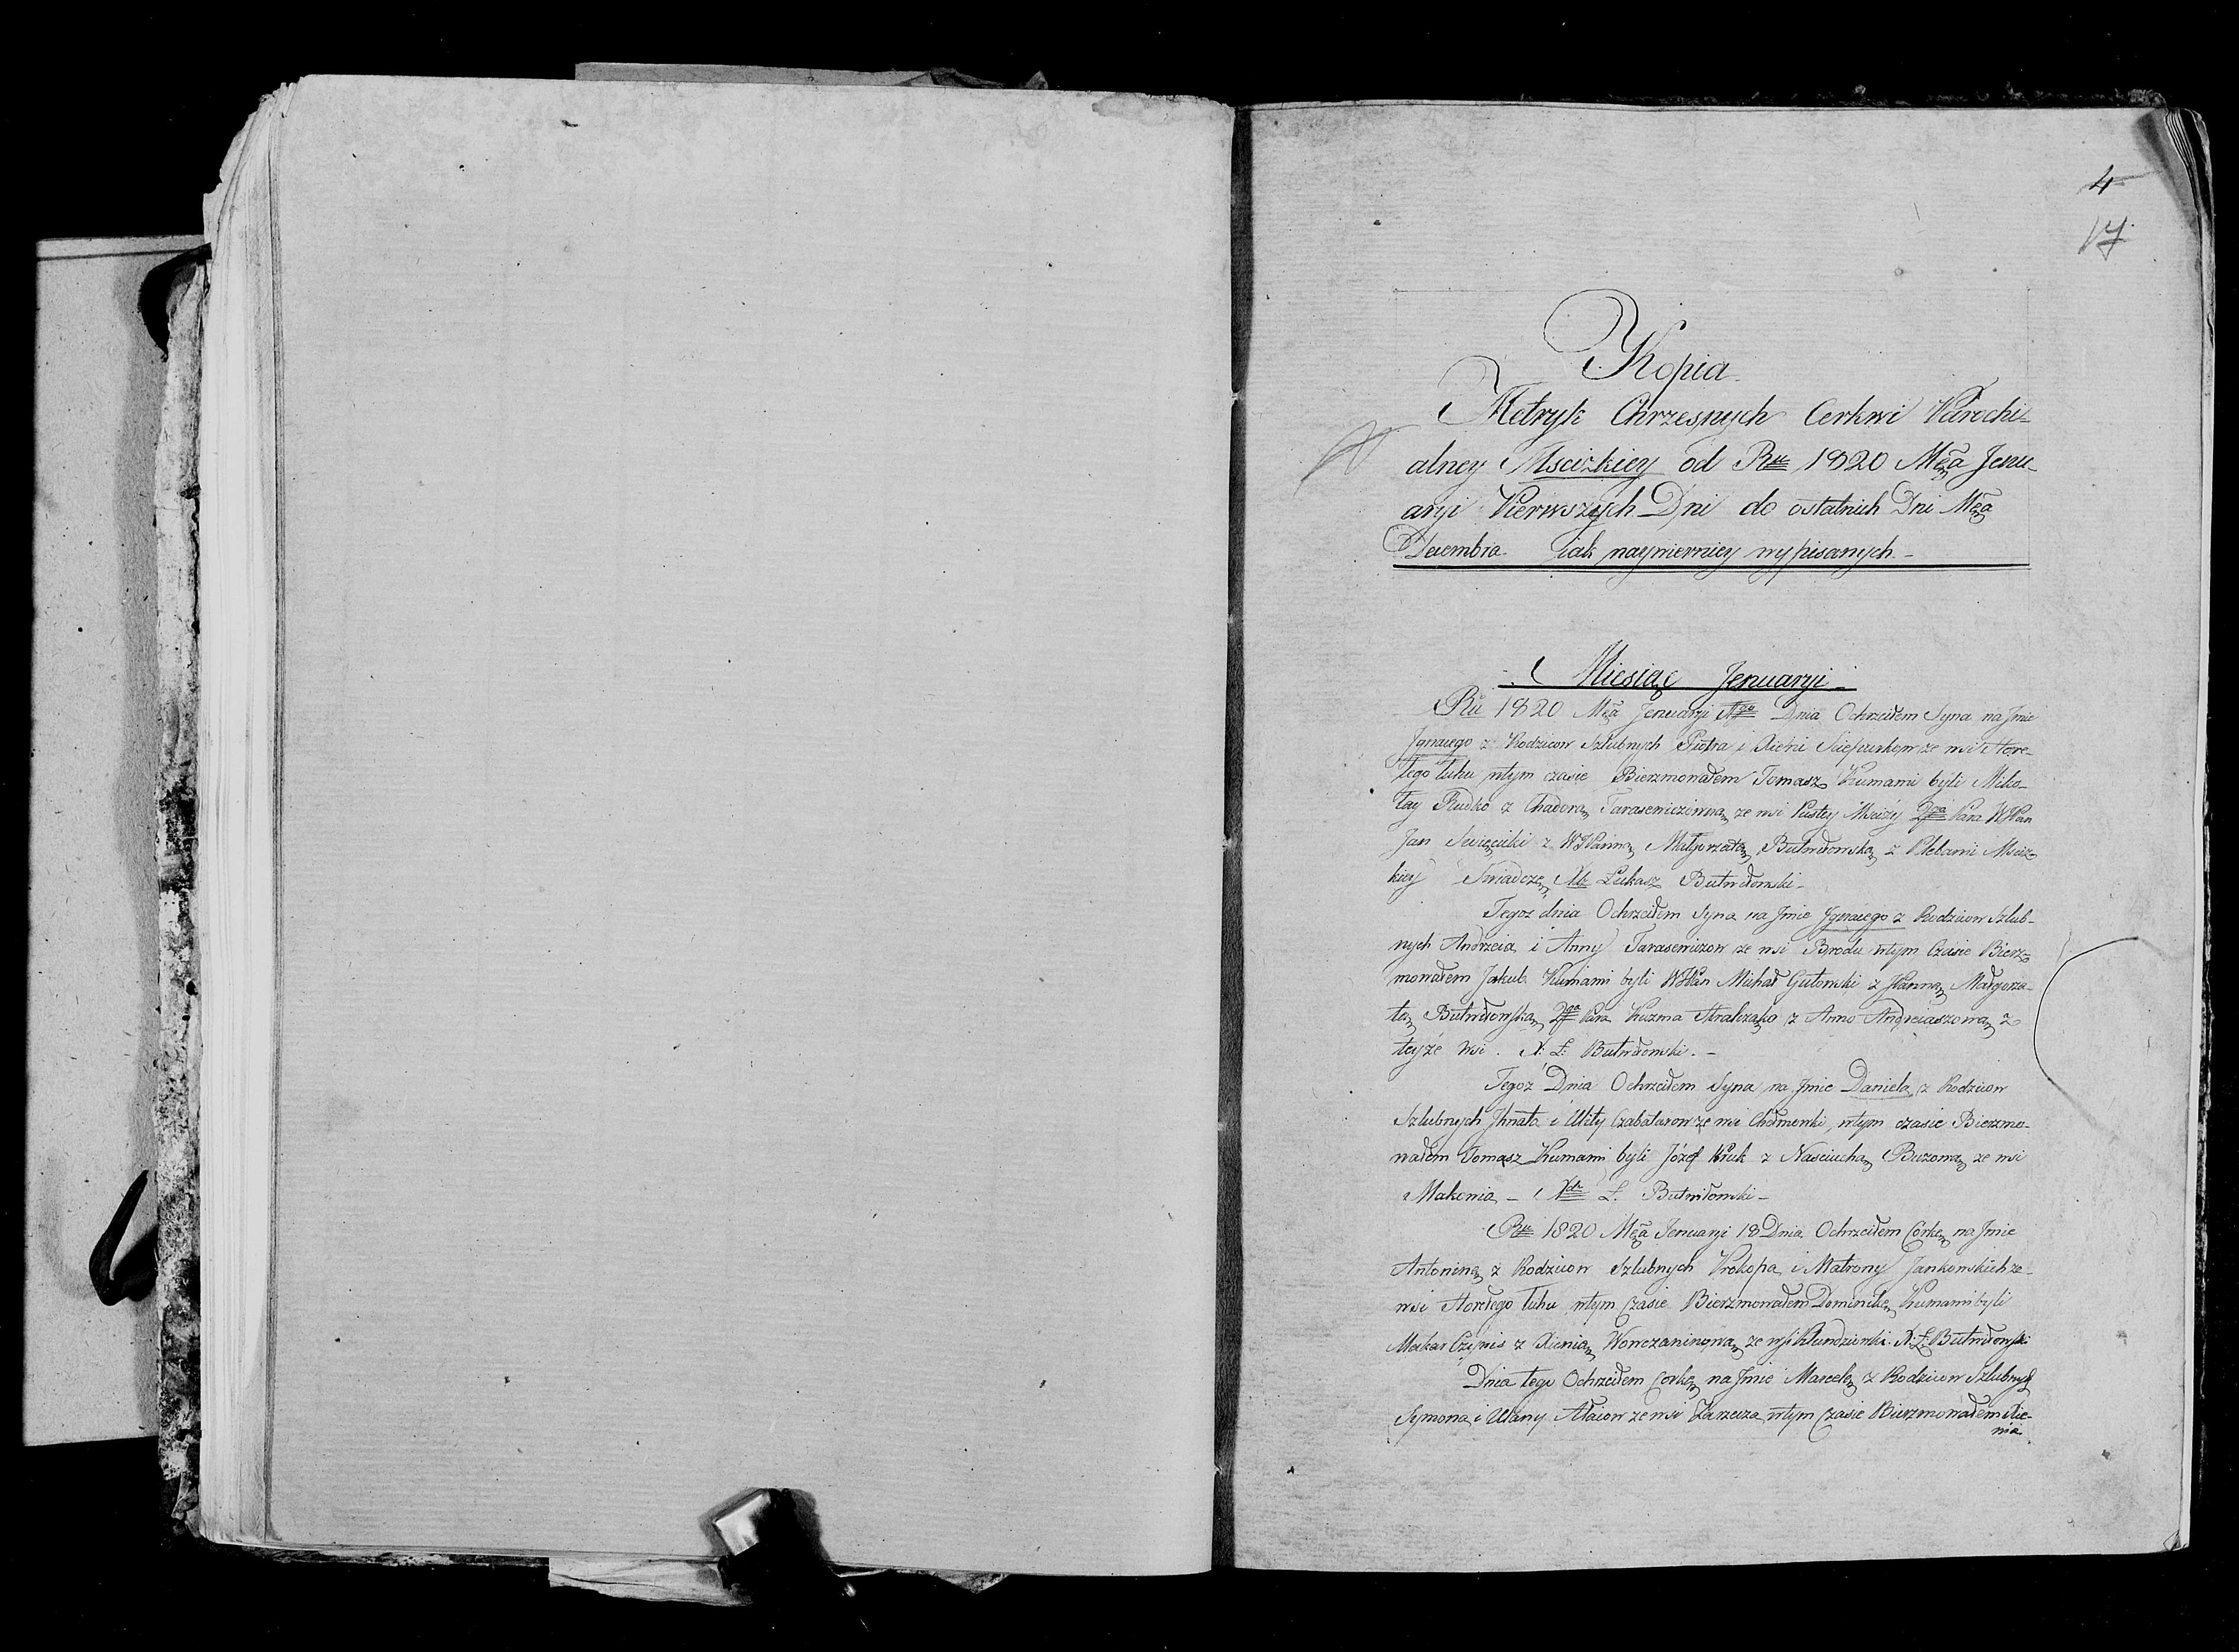 4
17
Kopia
Metryk Chrzesnych Cerkwi Parochi-
alney Mscizkiey od Rku 1820 Mca Jenu-
aryi Pierwszych Dni do ostatnich Dni Mca
Decembra Jak naywierniey wypisanych.-
Miesiąc Jenuaryi.-
Ru 1820 Mca Jenuaryi Dnia Ochrzciłem Syna na Jmie
Jgnacego z Rodzicow Szlubnych Piotra i Xieni ze wsi Hore-
łego łuhu wtym czasie Bierzmowałem Tomasz Kumami byli Miko-
łay Rudko z Chadorą Tarasewiczowną ze wsi Pustey Mściży 2ga Para WJPan
Jan Swięcicki z WJPanną Małgorzatą Butwiłowską z Plebanii Mściz-
kiey Swiadczę Łukasz Butwiłowski-
Tegoz dnia Ochrzciłem Syna na Jmie Jgnacego z Rodzicow Szlub-
nych Andrzeia i Anny Tarasewiczow ze wsi Brodu wtym Czasie Bierz-
mowałem Jakub Kumami byli WJPan Michał Gutowski z JPanną Małgorza-
tą Butwiłowską 2ga Para Kuzma z Anno z
teyże wsi. X: Ł: Butwiłowski.-
Tegoż Dnia Ochrzciłem Syna na Jmie Daniela z Rodzicow
Szlubnych Jhnata i Ulity Czabatarow ze wsi Chołmowki, wtym czasie Bierzmo-
wałem Tomasz Kumami byli Józef Kruk z Nasciuchą Buzową ze wsi
Makowia - Xdz Ł. Butwiłowski-
Rku 1820 Mca Jenuaryi 18 Dnia Ochrzciłem Corkę na Jmie
Antoniną z Rodzicow Szlubnych Prokopa i Matrony Jankowskich ze
wsi Horełego łuhu wtym Czasie Bierzmowałem Dominikę Kumami byli
Makar z Xienią Wonczaninową ze wsi X: Ł: Butwiłowski
Dnia tego Ochrzciłem Corkę na Jmie Marcelę z Rodzicow Szlubnych
Symona i Ulany ze wsi Zarzecza wtym Czasie Bierzmowałem Xie-
nia